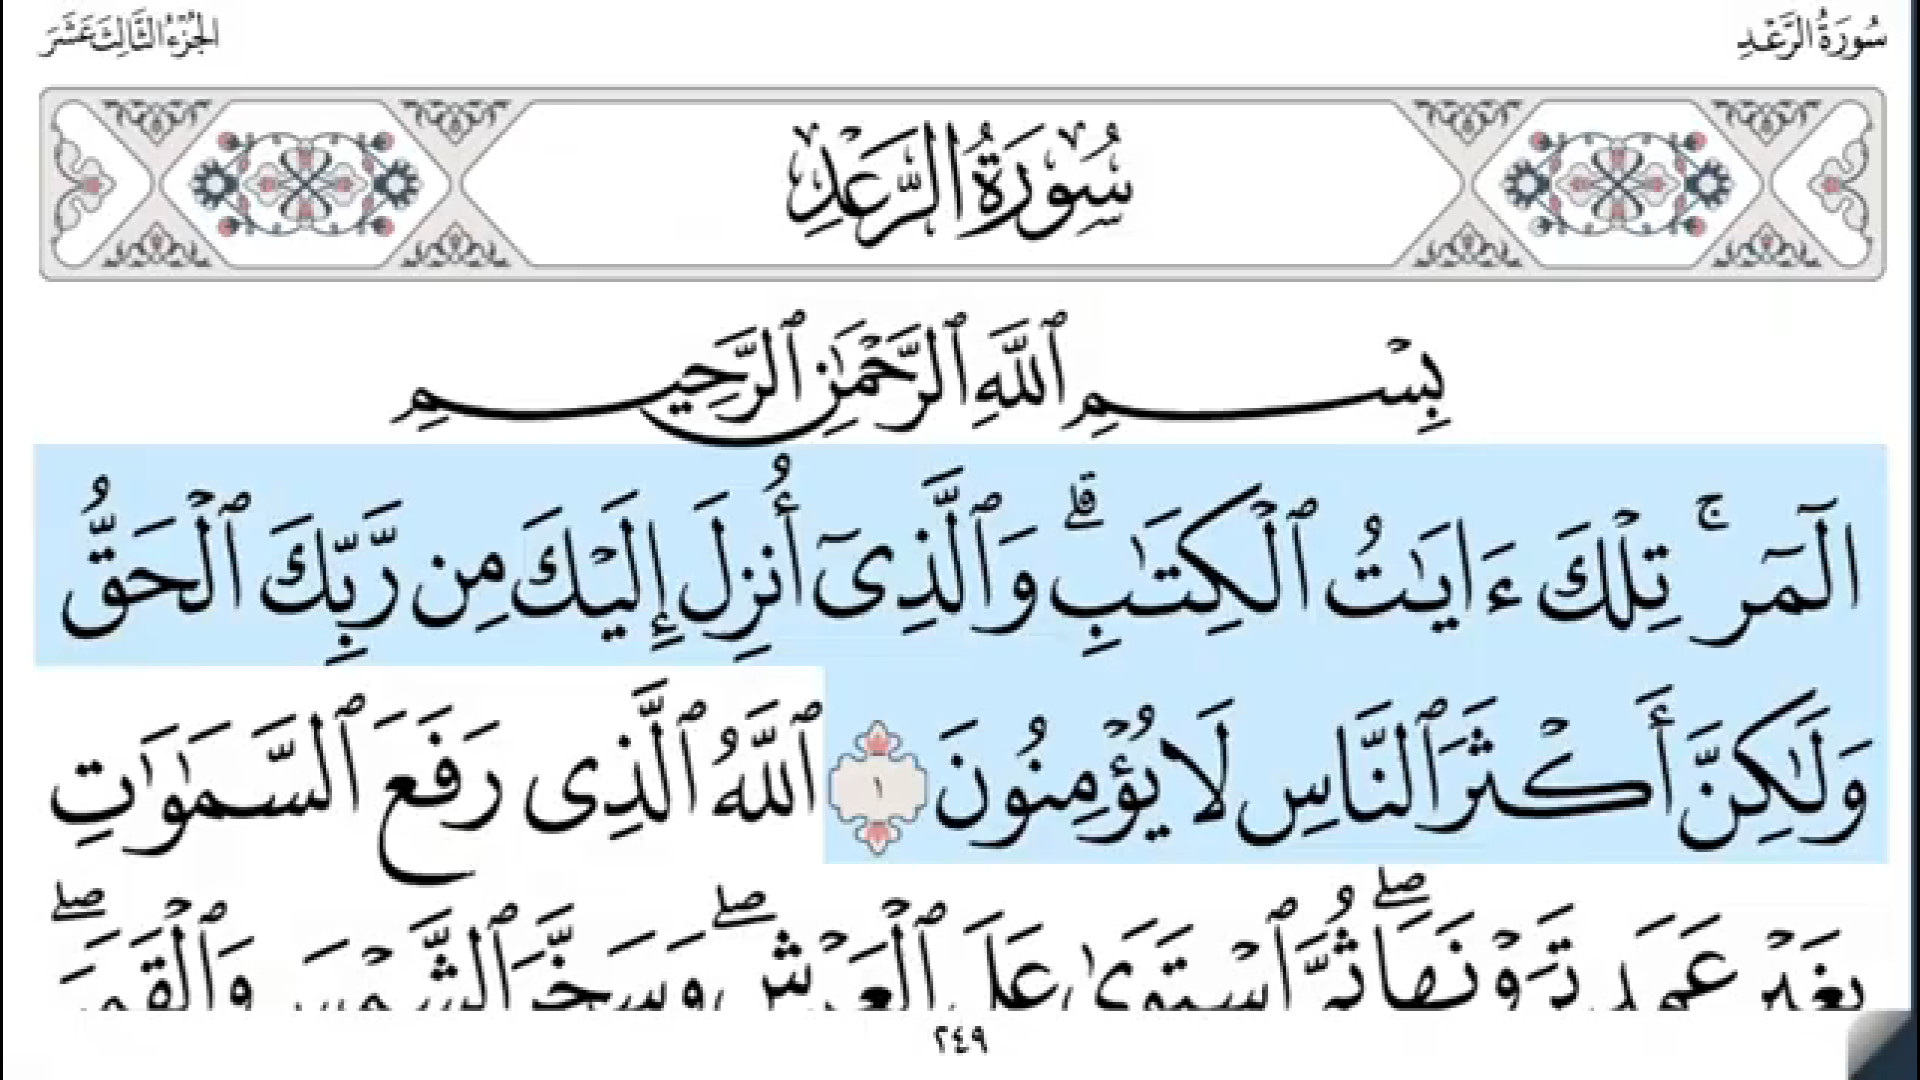 سُورَةُ الرَّعْدِ
الجُزْءُ الثَّالِثَ عَشَرَ
سُورَةُ الرَّعْدِ
بِسْمِ ٱللَّهِ ٱلرَّحْمَٰنِ ٱلرَّحِيمِ
الٓمٓرۚ تِلْكَ ءَايَٰتُ ٱلْكِتَٰبِۗ وَٱلَّذِىٓ أُنزِلَ إِلَيْكَ مِن رَّبِّكَ ٱلْحَقُّ
وَلَٰكِنَّ أَكْثَرَ ٱلنَّاسِ لَا يُؤْمِنُونَ ١ ٱللَّهُ ٱلَّذِى رَفَعَ ٱلسَّمَٰوَٰتِ
بِغَيْرِ عَمَدٍ تَرَوْنَهَاۖ ثُمَّ ٱسْتَوَىٰ عَلَى ٱلْعَرْشِۖ وَسَخَّرَ ٱلشَّمْسَ وَٱلْقَمَرَۖ
٢٤٩